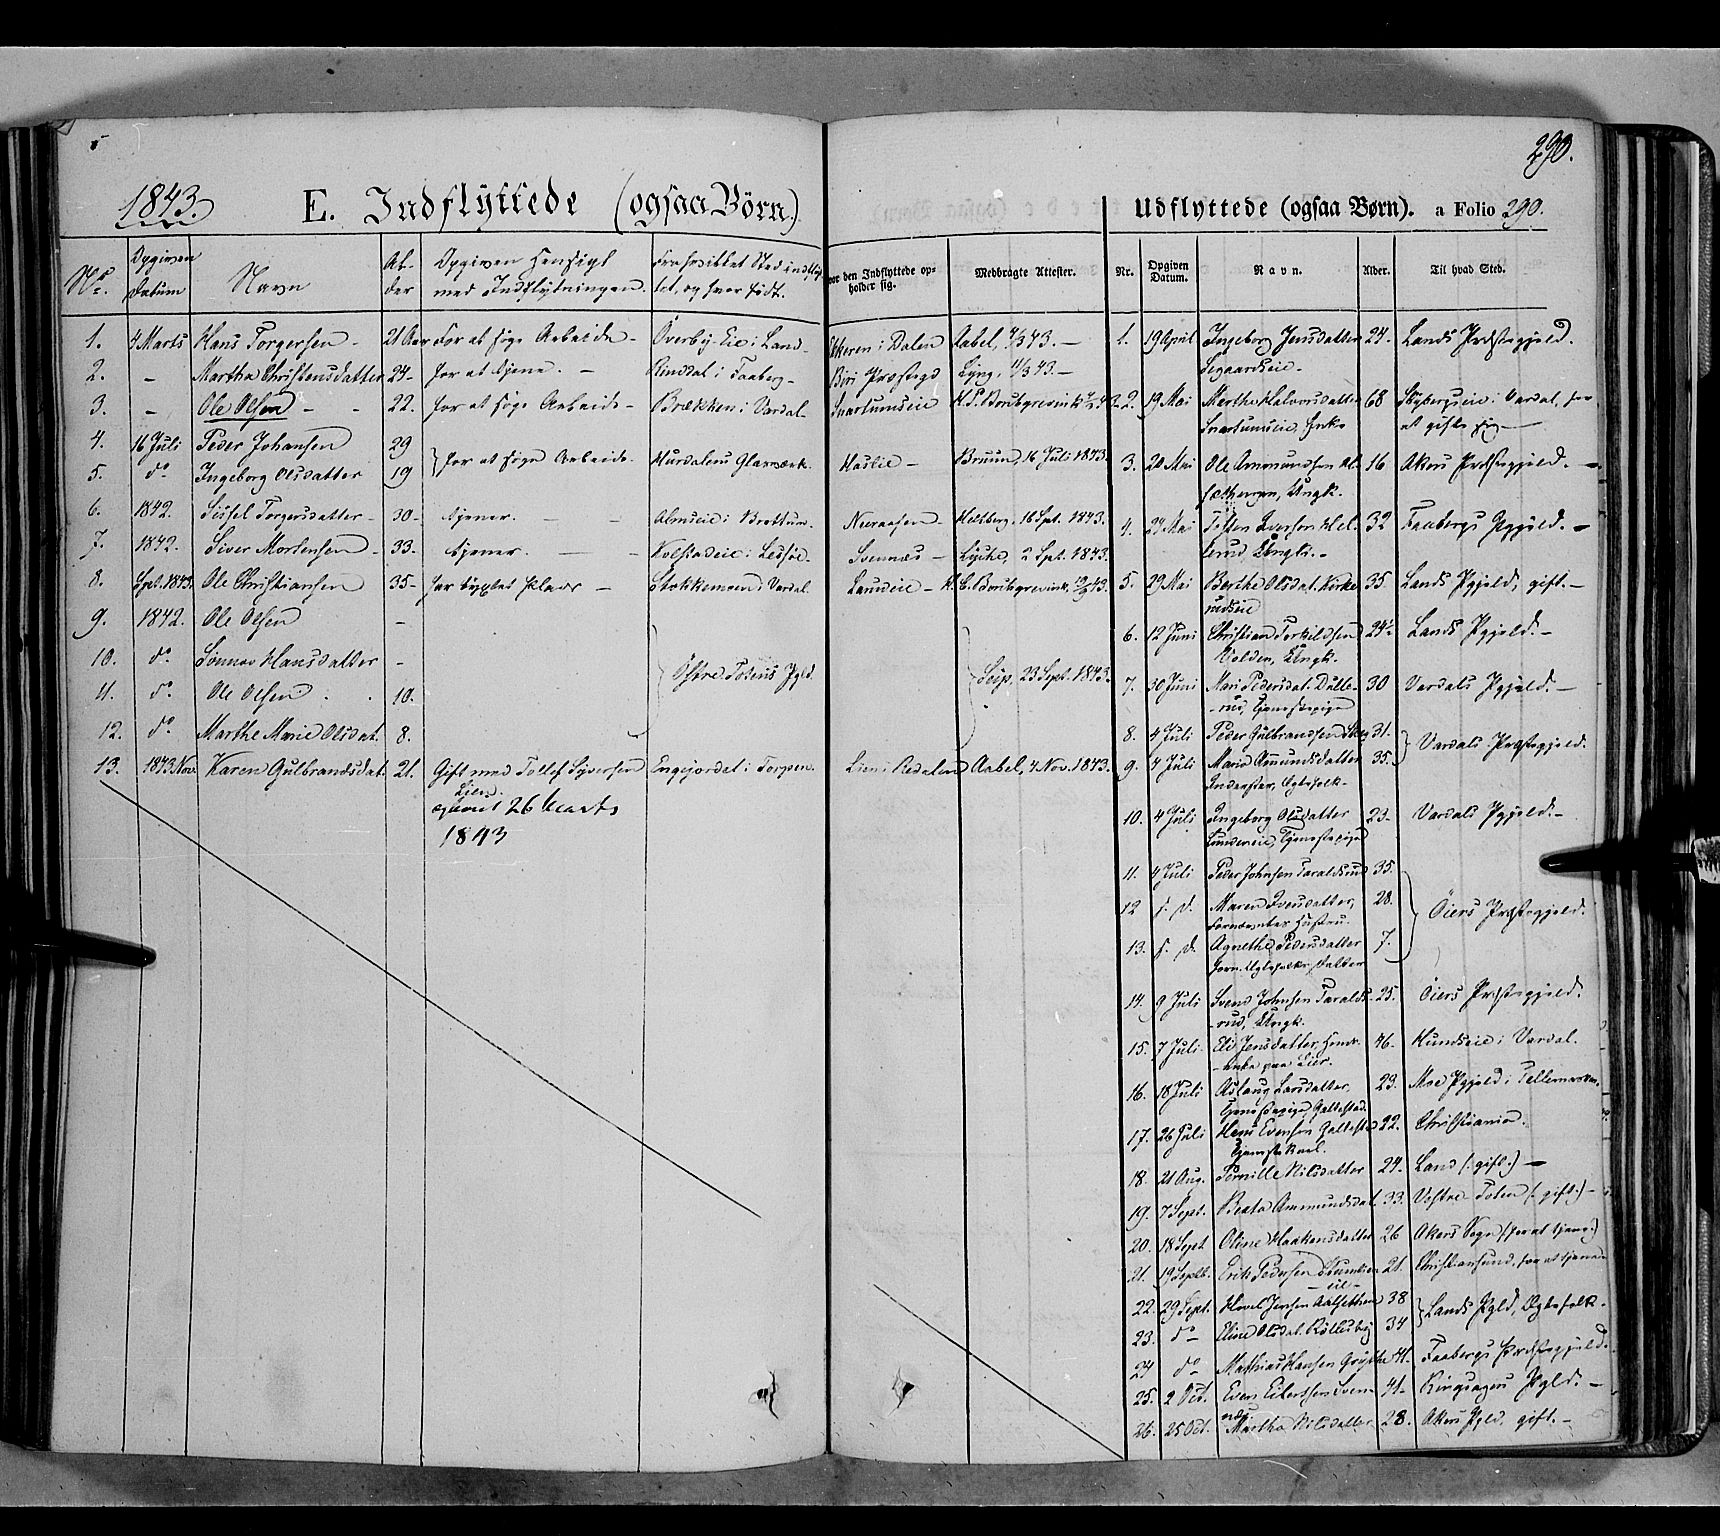 290.
1843.
E. Indflyttede (ogsaa Börn.)
Udflyttede (ogsaa Børn). a Folio 290.
No. Opgiven Datum Navn Alder Opgiven Hensigt med Indflytningen. Fra hvilket Sted indflyttet, og hvor født. hvor den Indflyttede opholder sig. Medbragte Attester.
1. 4 Marts Hans Torgersen - 21 Aar For at søge Arbeide - Överby-Eie i Land - i Dalen Aabel, 4/3 43. -
2. - Martha Christensdatter 24- for at tjene. - Rindal i Faaberg - Biri Præstegd Lyng, 11/3 43. -
3. - Ole Olsen - - 22. for at søge Arbeide - Brækken i Vardal Svartumseie
4. 16 Juli Peder Johansen 29
5. do Ingeborg Olsdatter 19 } for at søge Arbeide. Hurdalens Glasværk. Haslie - Bruun, 16 Juli 1843.
6. 1842. Sissel Torgersdatter - 30- tjener. - - Almseie i Brøttum. Neraasen - Heltberg, 16 Spt. 1843.
7. 1842. Siver Mortensen - 33. tjener. - - Kolstadeie i Lesjøe Svennæs - Lysche, 2 Spt. 1843.
8. Spt. 1843. Ole Christiansen 35- har bygslet Plads - Stokkemoen i Vardal.
9. 1842. Ole Olsen -
10. do Sönnov Hansdatter -
11. do Ole Olsen . . 10. } Östre Totens Pgld. } 23 Sept. 1843.
12. do Marthe Marie Olsdat. 8.
13. 1843 Nov. Karen Gulbrandsdat. 21. Gift med Tollef Syversen Engejordet i Torpen. Lien i Redalen Aabel, 4 Nov. 1843.
Lien.
26 Marts
1843
Nr. Opgiven Datum. Navn. Alder. Til hvad Sted.
1. 19 April Ingeborg Jensdatter 24. Lands Præstegjeld.
Segaardseie. -
2. 19 Mai Marthe Halvorsdatter 68 Skybergseie i Vardal, for
Svartumseie, Enke at gifte sig -
3. 20 Mai Ole Ammundsen 16 Akers Præstegjeld. -
Ungk.
4. 24 Mai Iversen 32 Faabergs Pgjeld. -
Ungk. -
5. 29 Mai Berthe Olsdat. Kirke 35 Lands Pgjeld, gift. -
rudseie
6. 12 Juni Christian Torkildsen 24½ Lands Pgjeld. -
Volden, Ungk.
7. 30 Juni Mari Pedersdat. Dulle- 30 Vardals Pgjeld. -
-rud, Tjenestepige
8. 4 Juli Peder Gulbrandsen 31.
9. 4 Juli Marie Amundsdatter 35. } Vardals Præstegjeld.
Inderster, Egtefolk.
10. 4 Juli Ingeborg Olsdatter 23- Vardals Pgjeld. -
Tjenestepige
11. 4 Juli Peder Johnsen Taraldsrud 35.
12 s. D. Maren Iversdatter, 28. } Öiers Præstegjeld.
fornævntes Hustru.
13. s. D. Agnethe Pedersdatter 7.
forn. Egtefolks Datter
14. 9 Juli Svend Johnsen Taralds- 25. Öiers Præstegjeld.
-rud, Ungk.
15. 7 Juli. Eli Jensdatter, 46. Hundseie i Vardal.
paa Lier.
16. 18 Juli Aslaug Larsdatter, 23. Moe Pgjeld i Tellemarken.
Tjenestepige, Galtestad.
17. 26 Juli Evensen Galtestad 22. Christiania.
Tjenestekarl.
18. 21 Aug. Pernille Nilsdatter 24. Land (: gift.) -
19. 7 Sept. Beata Ammundsdat. 33. Vestre Toten (: gift.) -
20. 18 Sept Oline Haakensdatter 26 Akers Sogn (for at tjene.)
21. 19 Septb. Erik Pedersen 21. Christiansund, for at tjene
22. 29 Sept. Hovel Jensen Aalsethen 38
23. do- Eline Olsdat. Kölleby 34 } Lands Pgld, Egtefolk.
24 do- Mathias Hansen 41. Faabergs Præstegjeld.
25. 2 Oct. Even Eilertsen Sven- 41- Ringsagers Pgld. -
næs
26. 25 Oct. Martha Nilsdatter 28. Akers Pgld, gift. -